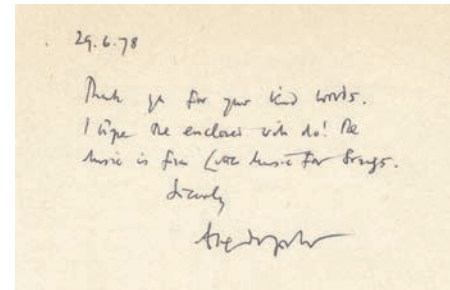 29.6.78
Thank you for your kind words.
I hope the enclosed will do! The
music is from Music for Strings.
Sincerely